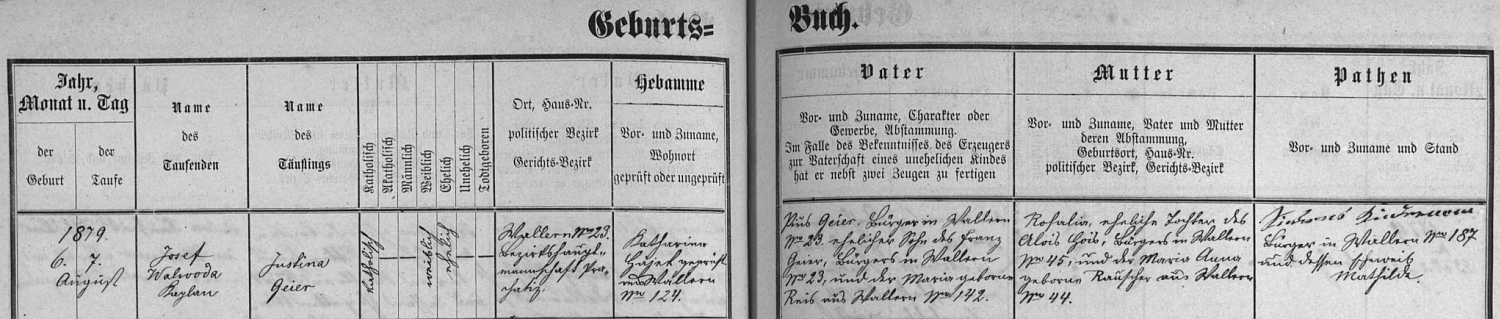 Geburts=
Buch.
Jahr,
Monat u. Tag
der
Geburt
der
Taufe
Name
des
Taufenden
Name
des
Täuflings
Katholisch
Akatholisch
Männlich
Weiblich
Ehelich
Unehelich
Todtgeboren
Ort, Haus-Nr.
politischer Bezirk
Gerichts-Bezirk
Hebamme
Vor- und Zuname,
Wohnort
geprüft oder ungeprüft
Vater
Vor- und Zuname, Charakter oder
Gewerbe, Abstammung.
Im Falle des Bekenntnisses des Erzeugers
zur Vaterschaft eines unehelichen Kindes
hat er nebst zwei Zeugen zu fertigen
Mutter
Vor- und Zuname, Vater und Mutter
deren Abstammung,
Geburtsort, Haus-Nr.
politischer Bezirk, Gerichts-Bezirk
Pathen
Vor- und Zuname und Stand
1879.
6. 7.
August
Josef
Walwoda
Kaplan
Justina
Geier
katholisch
weiblich
ehelich
Wallern No 23.
Bezirkshaupt-
mannschaft Pra-
chatiz.
Katharina
Hajek geprüft
aus Wallern
No 124.
Pius Geier, Bürger in Wallern
No 23. ehelicher Sohn des Franz
Geier, Bürgers in Wallern
No 23, und der Maria geborne
Reis aus Wallern No 142.
Rosalia, eheliche Tochter des
Alois Gois, Bürgers in Wallern
No 45, und der Maria Anna
geborne Rauscher aus Wallern
No 44.
Bürger in Wallern No 187
und dessen Eheweib
Mathilde.